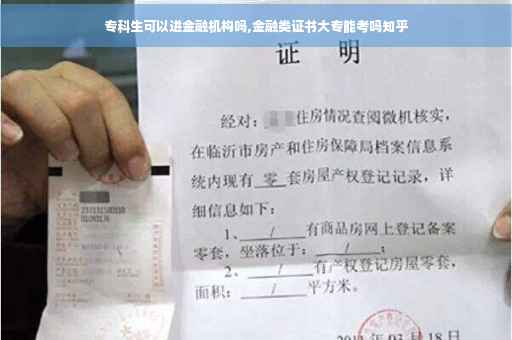 专科生可以进金融机构吗,金融类证书大专能考吗知乎
证 明
经对: 住房情况查阅微机核实,
在临沂市房产和住房保障局档案信息系
统内现有 零 套房屋产权登记记录,详
细信息如下:
1、 / 有商品房网上登记备案
零套,坐落位于: / ;
2、 / 有产权登记房屋零套,
面积: / 平方米。
03月18日